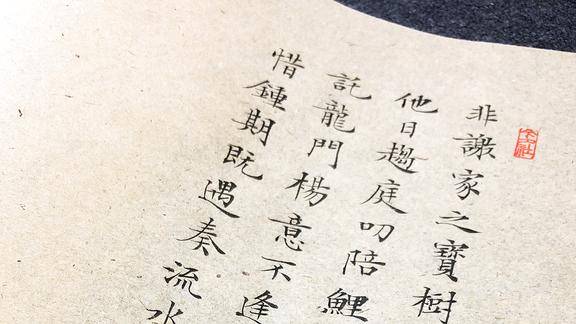 非謝家之寶樹
他日趨庭叨陪鯉
託龍門楊意不逢
惜鍾期既遇奏流水